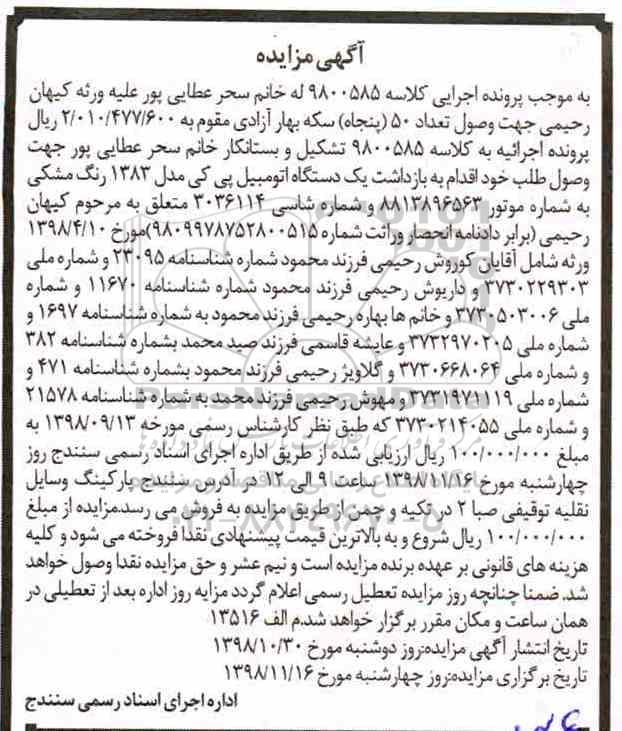 آگهی مزایده
به موجب پرونده اجرایی کلاسه ۹۸۰۰۵۸۵ له خانم سحر عطایی پور علیه ورثه کیهان
رحیمی جهت وصول تعداد ۵۰ (پنجاه) سکه بهار آزادی مقوم به ۲/۰۱۰/۴۷۷/۶۰۰ ریال
پرونده اجرائیه به کلاسه ۹۸۰۰۵۸۵ تشکیل و بستانکار خانم سحر عطایی پور جهت
وصول طلب خود اقدام به بازداشت یک دستگاه اتومبیل پی کی مدل ۱۳۸۳ رنگ مشکی
به شماره موتور ۸۸۱۳۸۹۶۵۶۳ و شماره شاسی ۳۰۳۶۱۱۴ متعلق به مرحوم کیهان
رحیمی (برابر دادنامه انحصار وراثت شماره ۹۸۰۹۹۷۸۷۵۲۸۰۰۵۱۵)مورخ ۱۳۹۸/۴/۱۰
ورثه شامل آقایان کوروش رحیمی فرزند محمود شماره شناسنامه ۲۳۰۹۵ و شماره ملی
۳۷۳۰۲۲۹۳۰۳ و داریوش رحیمی فرزند محمود شماره شناسنامه ۱۱۶۷۰ و شماره
ملی ۳۷۳۰۵۰۳۰۰۶ و خانم ها بهاره رحیمی فرزند محمود به شماره شناسنامه ۱۶۹۷ و
شماره ملی ۳۷۳۲۹۷۰۲۰۵ و عایشه قاسمی فرزند صید محمد بشماره شناسنامه ۳۸۲
و شماره ملی ۳۷۳۰۶۶۸۰۶۴ و گلاویژ رحیمی فرزند محمود بشماره شناسنامه ۴۷۱ و
شماره ملی ۳۷۳۱۹۷۱۱۱۹ و مهوش رحیمی فرزند محمد به شماره شناسنامه ۲۱۵۷۸
و شماره ملی ۳۷۳۰۲۱۴۰۵۵ که طبق نظر کارشناس رسمی مورخه ۱۳۹۸/۰۹/۱۳ به
مبلغ ۱۰۰/۰۰۰/۰۰۰ ریال ارزیابی شده از طریق اداره اجرای اسناد رسمی سنندج روز
چهارشنبه مورخ ۱۳۹۸/۱۱/۱۶ ساعت ۹ الی ۱۲ در آدرس سنندج پارکینگ وسایل
نقلیه توقیفی صبا ۲ در تکیه و چمن از طریق مزایده به فروش می رسد.مزایده از مبلغ
۱۰۰/۰۰۰/۰۰۰ ریال شروع و به بالاترین قیمت پیشنهادی نقدا فروخته می شود و کلیه
هزینه های قانونی بر عهده برنده مزایده است و نیم عشر و حق مزایده نقدا وصول خواهد
شد. ضمنا چنانچه روز مزایده تعطیل رسمی اعلام گردد مزایه روز اداره بعد از تعطیلی در
همان ساعت و مکان مقرر برگزار خواهد شد.م الف ۱۳۵۱۶
تاریخ انتشار آگهی مزایده:روز دوشنبه مورخ ۱۳۹۸/۱۰/۳۰
تاریخ برگزاری مزایده:روز چهارشنبه مورخ ۱۳۹۸/۱۱/۱۶
اداره اجرای اسناد رسمی سنندج